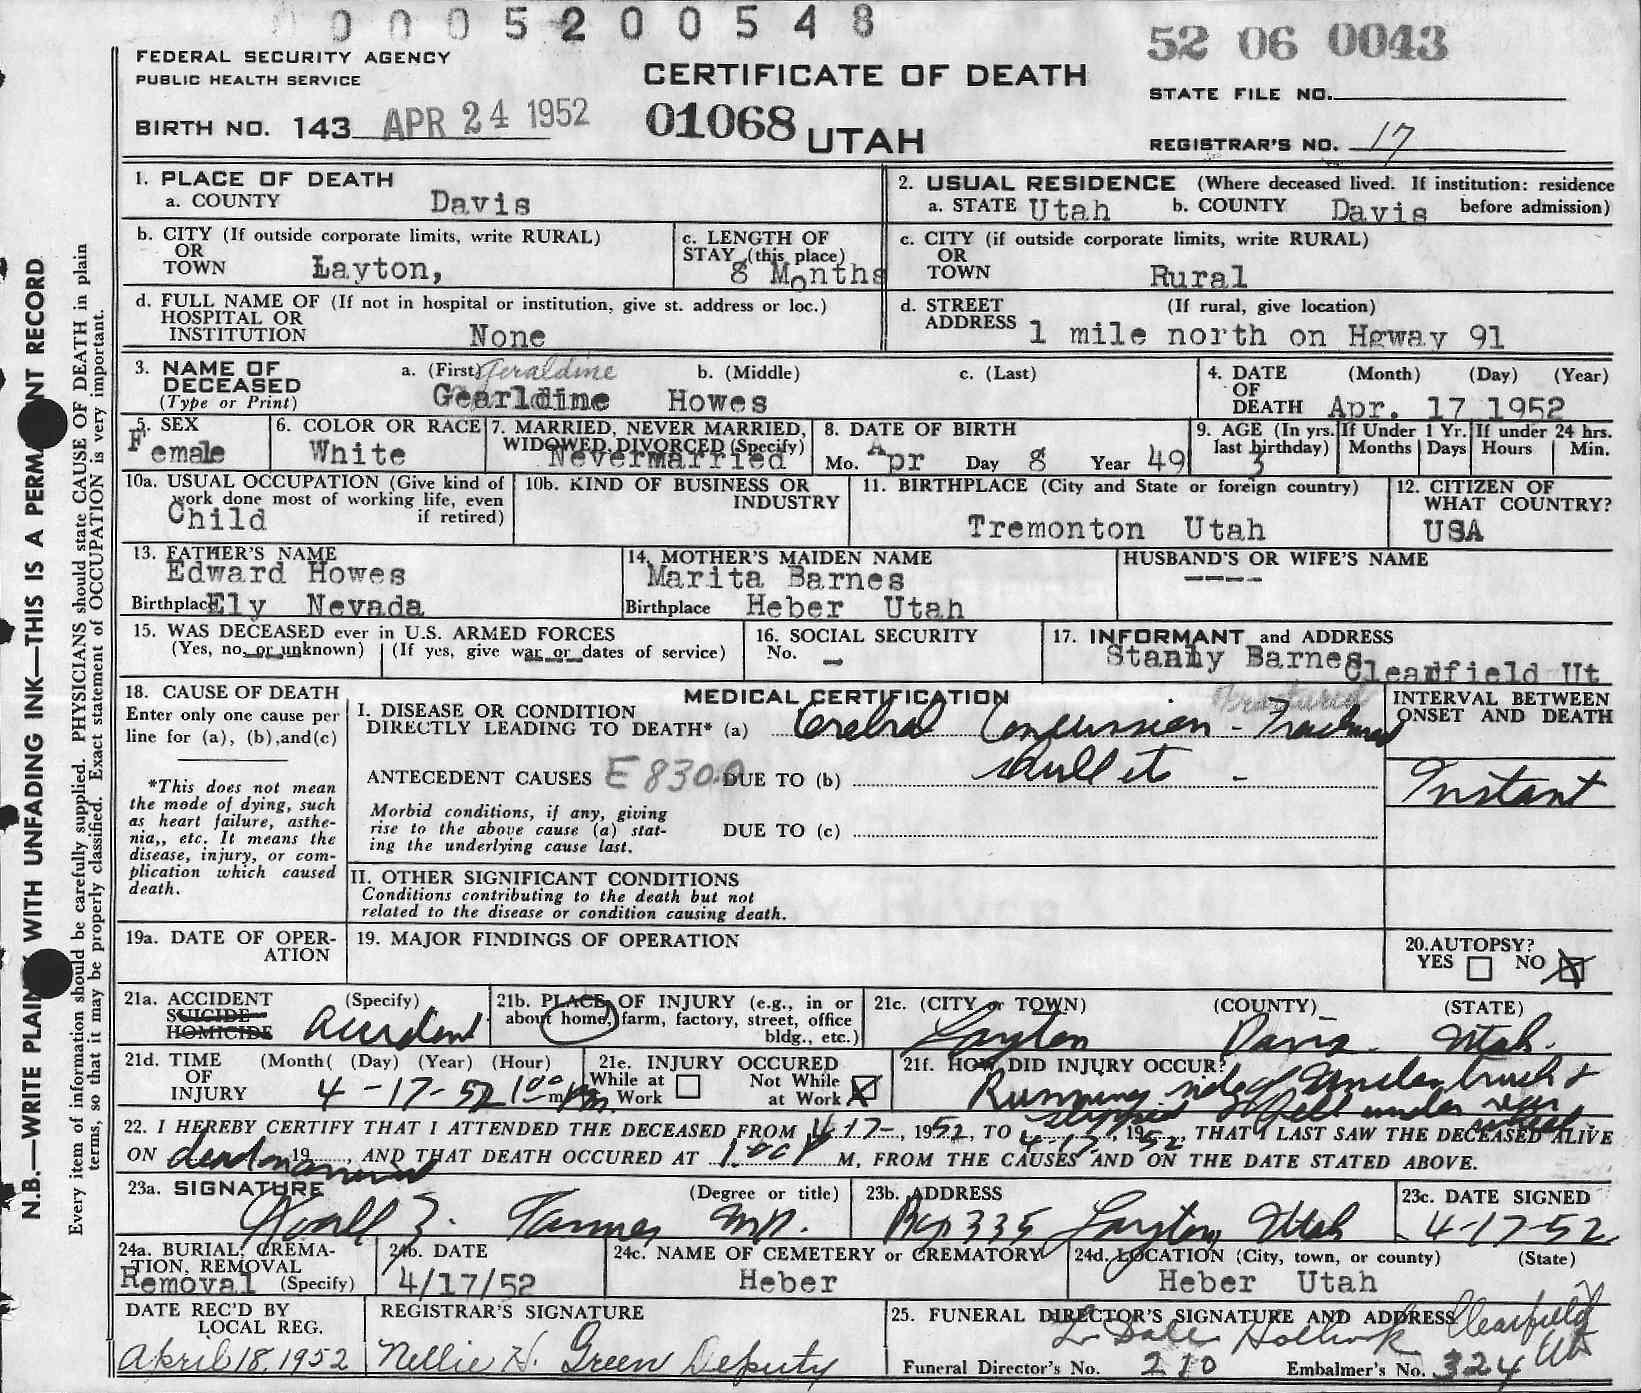 0 0 0 5 2 0 0 5 4 8
52 06 0043
FEDERAL SECURITY AGENCY
PUBLIC HEALTH SERVICE
CERTIFICATE OF DEATH
STATE FILE NO.
BIRTH NO. 143 APR 24 1952
01068 UTAH
REGISTRAR'S NO. 17
N.B.—WRITE PLAIN WITH UNFADING INK—THIS IS A PERMA NT RECORD
Every item of information should be carefully supplied. PHYSICIANS should state CAUSE OF DEATH in plain
terms, so that it may be properly classified. Exact statement of OCCUPATION is very important.
1. PLACE OF DEATH
a. COUNTY Davis
2. USUAL RESIDENCE (Where deceased lived. If institution: residence
a. STATE Utah b. COUNTY Davis before admission)
b. CITY (If outside corporate limits, write RURAL)
OR
TOWN Layton,
c. LENGTH OF
STAY (this place)
8 Months
c. CITY (if outside corporate limits, write RURAL)
OR
TOWN Rural
d. FULL NAME OF (If not in hospital or institution, give st. address or loc.)
HOSPITAL OR
INSTITUTION None
d. STREET (If rural, give location)
ADDRESS 1 mile north on Hgway 91
3. NAME OF
DECEASED
(Type or Print)
a. (First) Geraldine b. (Middle) c. (Last)
Gearldine Howes
4. DATE (Month) (Day) (Year)
OF
DEATH Apr. 17 1952
5. SEX
Female
6. COLOR OR RACE
White
7. MARRIED, NEVER MARRIED,
WIDOWED, DIVORCED (Specify)
Nevermarried
8. DATE OF BIRTH
Mo. Apr Day 8 Year 49
9. AGE (In yrs.
last birthday)
3
If Under 1 Yr.
Months Days
If under 24 hrs.
Hours Min.
10a. USUAL OCCUPATION (Give kind of
work done most of working life, even
if retired)
Child
10b. KIND OF BUSINESS OR
INDUSTRY
11. BIRTHPLACE (City and State or foreign country)
Tremonton Utah
12. CITIZEN OF
WHAT COUNTRY?
USA
13. FATHER'S NAME
Edward Howes
Birthplace Ely Nevada
14. MOTHER'S MAIDEN NAME
Marita Barnes
Birthplace Heber Utah
HUSBAND'S OR WIFE'S NAME
----
15. WAS DECEASED ever in U.S. ARMED FORCES
(Yes, no, or unknown) (If yes, give war or dates of service)
16. SOCIAL SECURITY
No. —
17. INFORMANT and ADDRESS
Stanly Barnes Clearfield Ut
18. CAUSE OF DEATH
Enter only one cause per
line for (a), (b),and(c)
*This does not mean
the mode of dying, such
as heart failure, asthe-
nia,, etc. It means the
disease, injury, or com-
plication which caused
death.
MEDICAL CERTIFICATION
Fractured
I. DISEASE OR CONDITION
DIRECTLY LEADING TO DEATH* (a) Cerebral Concussion - Fractured
ANTECEDENT CAUSES E830.0 DUE TO (b) Skull etc -
Morbid conditions, if any, giving
rise to the above cause (a) stat-
ing the underlying cause last.
DUE TO (c)
INTERVAL BETWEEN
ONSET AND DEATH
Instant
II. OTHER SIGNIFICANT CONDITIONS
Conditions contributing to the death but not
related to the disease or condition causing death.
19a. DATE OF OPER-
ATION
19. MAJOR FINDINGS OF OPERATION
20. AUTOPSY?
YES NO X
21a. ACCIDENT (Specify)
SUICIDE
HOMICIDE
Accident
21b. PLACE OF INJURY (e.g., in or
about home, farm, factory, street, office
bldg., etc.)
21c. (CITY or TOWN) (COUNTY) (STATE)
Layton Davis Utah.
21d. TIME (Month( (Day) (Year) (Hour)
OF
INJURY 4-17-52 1:00 pm.
21e. INJURY OCCURED
While at Work Not While at Work X
21f. HOW DID INJURY OCCUR?
Running side of Uncles truck &
slipped & fell under rear wheel
22. I HEREBY CERTIFY THAT I ATTENDED THE DECEASED FROM 4-17-, 1952, TO 4-17, 1952, THAT I LAST SAW THE DECEASED ALIVE
ON dead on arrival 19, AND THAT DEATH OCCURED AT 1:00 P M, FROM THE CAUSES AND ON THE DATE STATED ABOVE.
23a. SIGNATURE (Degree or title)
Tanner MD.
23b. ADDRESS
Box 335 Layton, Utah
23c. DATE SIGNED
4-17-52
24a. BURIAL, CREMA-
TION, REMOVAL
Removal (Specify)
24b. DATE
4/17/52
24c. NAME OF CEMETERY or CREMATORY
Heber
24d. LOCATION (City, town, or county) (State)
Heber Utah
DATE REC'D BY
LOCAL REG.
April 18, 1952
REGISTRAR'S SIGNATURE
Nellie H. Green Deputy
25. FUNERAL DIRECTOR'S SIGNATURE AND ADDRESS
L Dale Clearfield Ut
Funeral Director's No. 210 Embalmer's No. 324